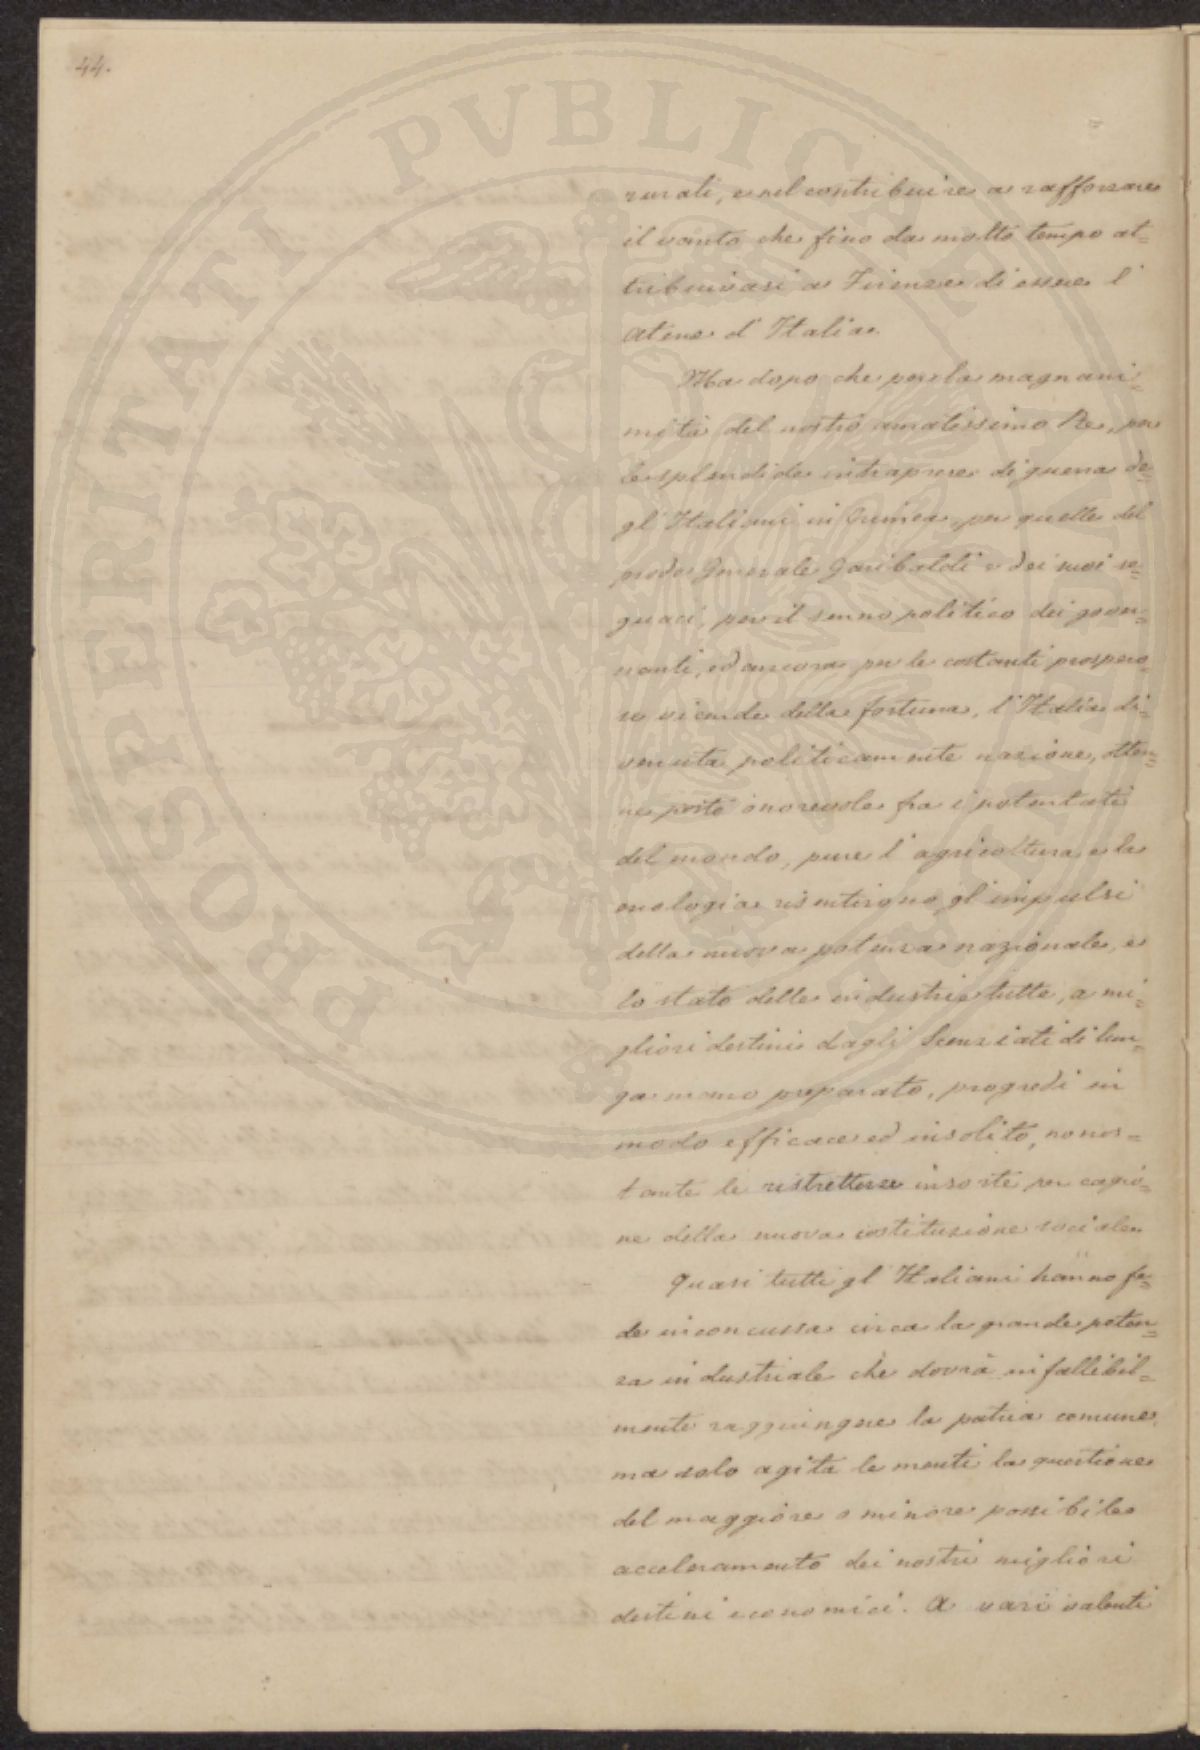 44.
rurali, e nel contribuire a rafforzare
il vanto che fino da molto tempo at=
tribuivasi a Firenze di essere l'
Atene d'Italia.
Ma dopo che per la magnani=
mità del nostro amatissimo Re, per
le splendide intraprese di guerra de=
gl'Italiani in Crimea, per quelle del
prode Generale Garibaldi e dei suoi se=
guaci, per il senno politico dei gover=
nanti, ed ancora per le costanti prospero=
se vicende della fortuna, l'Italia di=
venuta politicamente nazione, otten=
ne posto onorevole fra i potentati
del mondo, pure l'agricoltura e la
enologia risentirono gl'impulsi
della nuova potenza nazionale, e
lo stato delle industrie tutte, a mi=
gliori destini dagli Scenziati di lun=
ga mano preparato, progredì in
modo efficace ed insolito, nonos=
tante le ristrettezze insorte per cagio=
ne della nuova costituzione sociale.
Quasi tutti gl'Italiani hanno fe=
de inconcussa circa la grande poten=
za industriale che dovrà infallibil=
mente raggiungere la patria comune,
ma solo agita le menti la questione
del maggiore o minore possibile
acceleramento dei nostri migliori
destini economici. A vari valenti
PROSPERITATI PVBLICAE